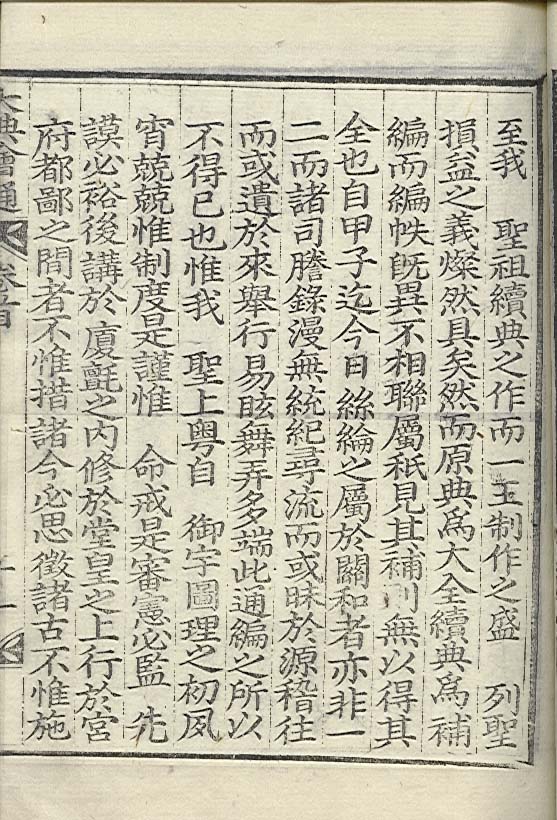 至我 聖祖續典之作而一王制作之盛 列聖
損益之義燦然具矣然而原典爲大全續典爲補
編而編帙旣異不相聯屬秖見其補刊無以得其
全也自甲子迄今日絲綸之屬於關和者亦非一
二而諸司謄錄漫無統紀尋流而或昧於源稽往
而或遺於來舉行易眩舞弄多端此通編之所以
不得已也惟我 聖上粤自 御宇圖理之初夙
宵兢兢惟制度是謹惟 命戒是審憲必監 先
謨必裕後講於廈氈之內修於堂皇之上行於宮
府都鄙之間者不惟措諸今必思徵諸古不惟施
大典會通 卷首